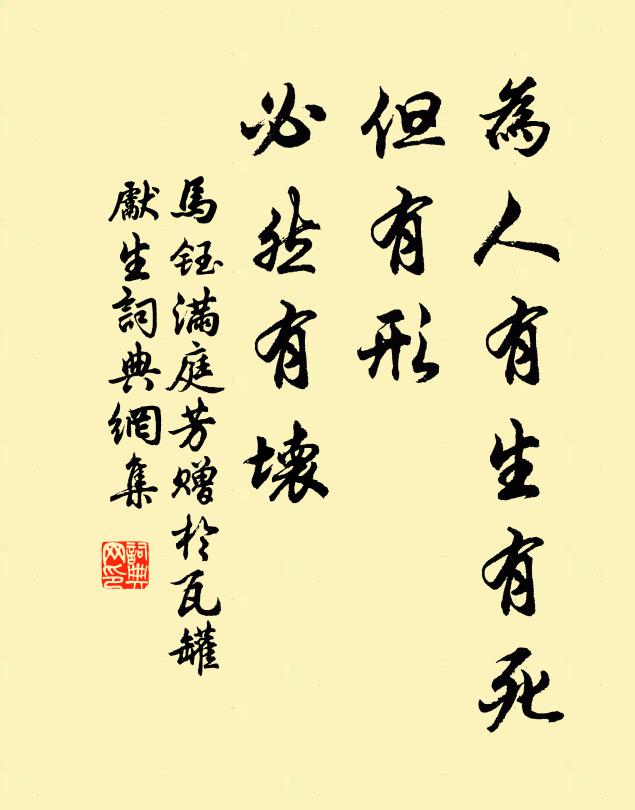 為人有生有死
但有形
必然有壞
馬鈺滿庭芳贈於瓦罐
獻生詞典網集
詞典网印